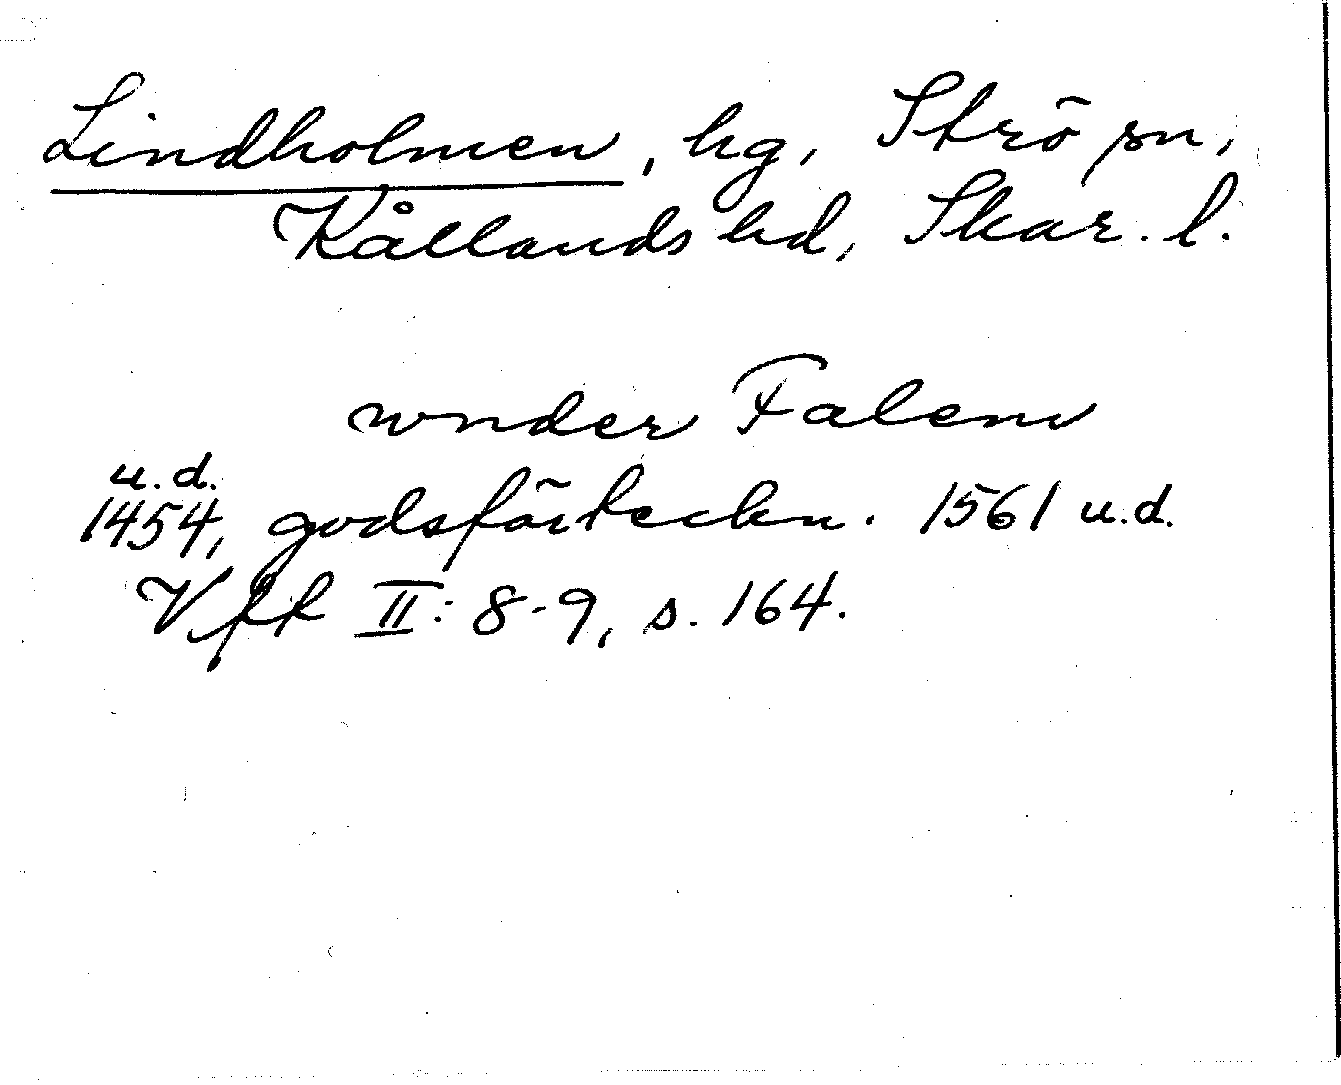 Lindholmen, hg, Strö sn,
Kållands hd, Skar. l.
under Falem
u.d.
1454, godsförteckn. 1561 u.d.
Vfft II: 8-9, s. 164.